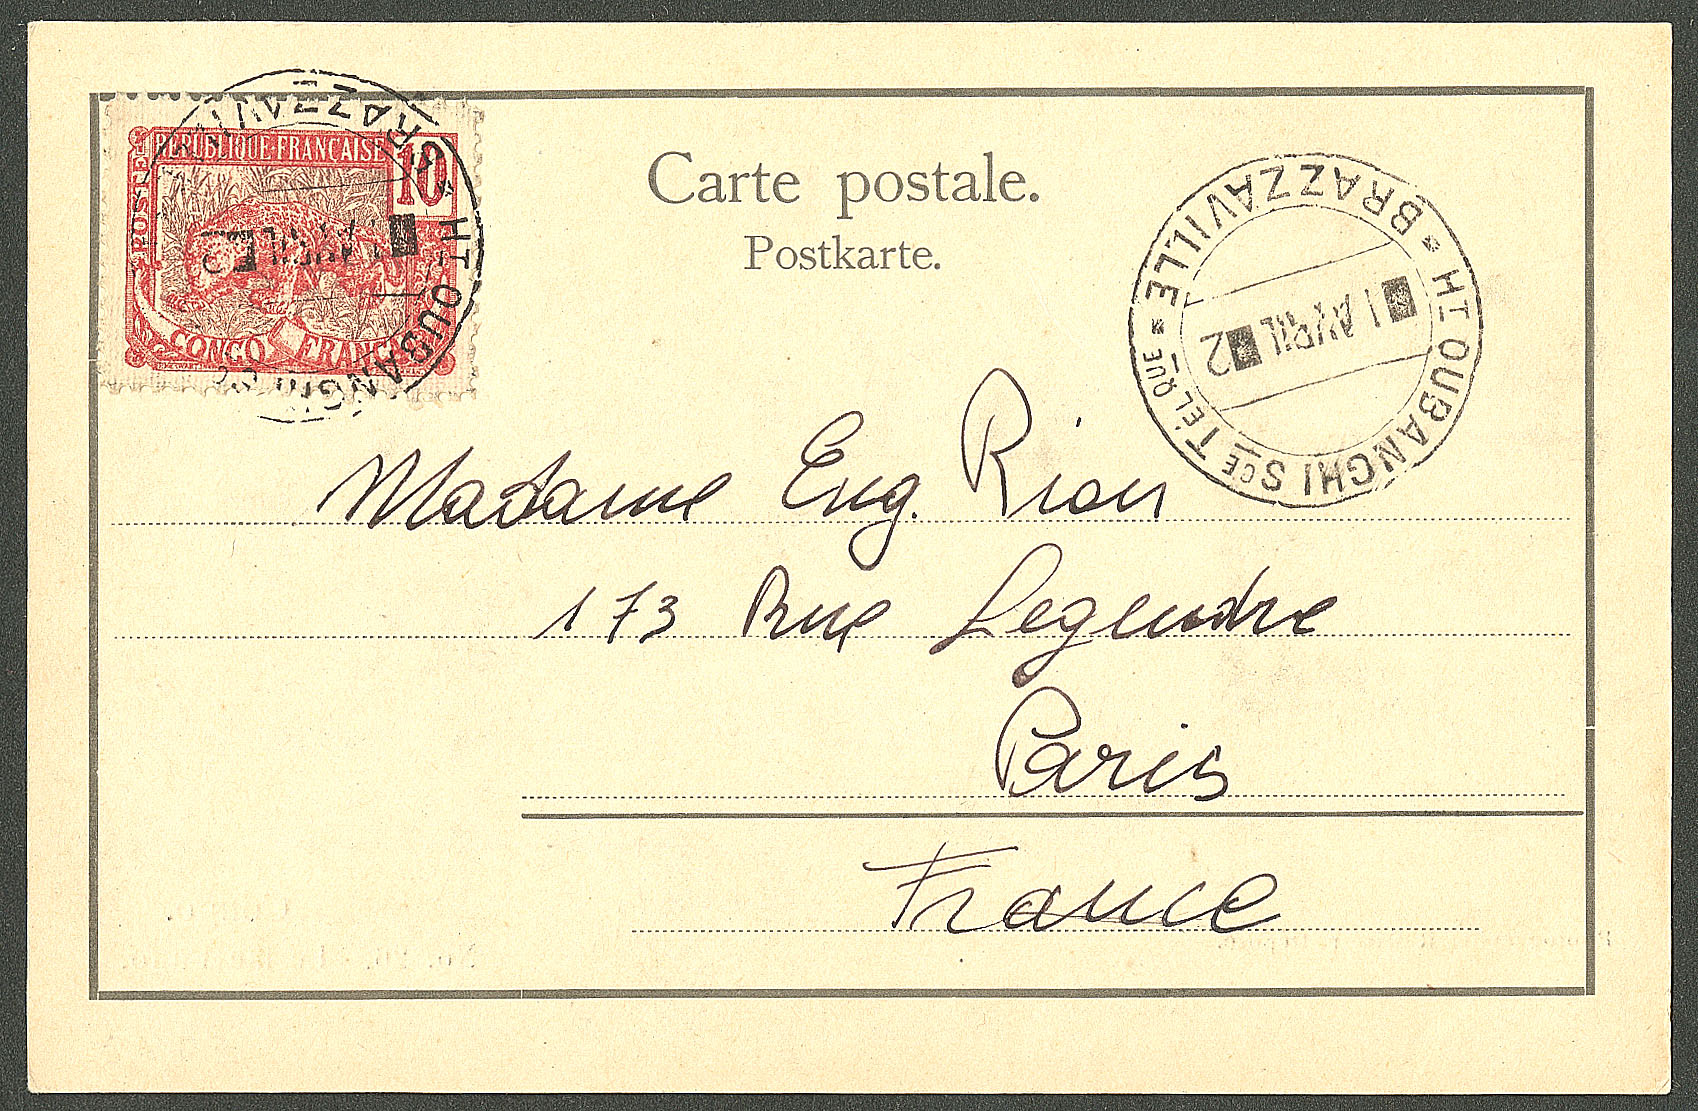 REPUBLIQUE·FRANÇAISE
10
POSTES
CONGO FRANÇAIS
Carte postale.
Postkarte.
Hᵀ OUBANGHI Sᶜᴱ TÉLQUE * BRAZZAVILLE *
1 AVRIL 2
BRAZZAVILLE * Hᵀ OUBANGHI
AVRIL 2
Madame Eug. Rion
173 Rue Legendre
Paris
France